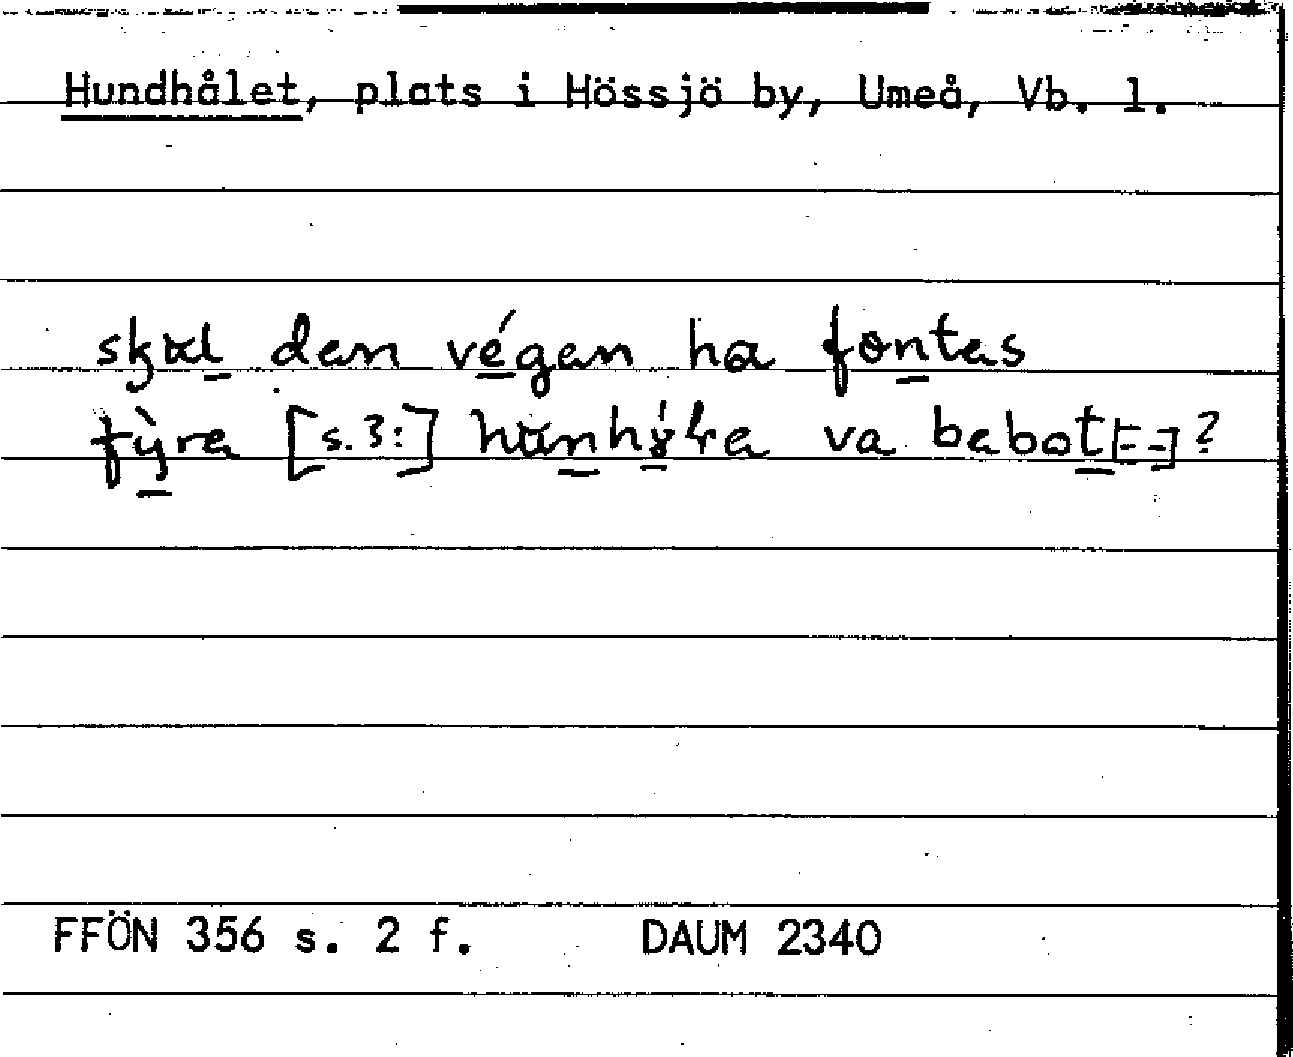 Hundhålet, plats i Hössjö by, Umeå, Vb. 1.
den végen ha føntas
fỳre [s.3:] va bebot[=-]?
FFÖN 356 s. 2 f. DAUM 2340